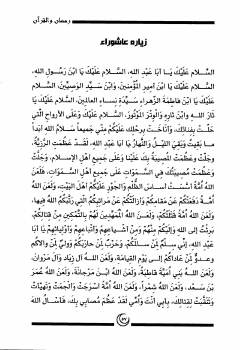 رمضان والقرآن
زيارة عاشوراء
السَّلامُ عَلَيْكَ يَـا اَبا عَبْدِ اللهِ، السَّلامُ عَلَيْكَ يَا ابْنَ رَسُولِ اللهِ،
السَّلامُ عَلَيْكَ يَا ابْنَ اَميرِ الْمُؤْمِنينَ، وَابْنَ سَيِّدِ الْوَصِيّينَ، السَّلامُ
عَلَيْكَ يَا ابْنَ فاطِمَةَ الزَّهْراءِ سَيِّدَةِ نِساءِ الْعالَمينَ، السَّلامُ عَلَيْكَ يَا
ثارَ اللهِ وابْنَ ثارِهِ وَالْوِتْرَ الْمَوْتُورَ، السَّلامُ عَلَيْكَ وَعَلَى الاَرواحِ الَّتي
حَلَّتْ بِفِنائِكَ، وَاَناخَت بِرحْلِك عَلَيْكُمْ مِنّي جَميعاً سَلامُ اللهِ اَبَداً
ما بَقيتُ وَبَقِيَ اللَّيْلُ وَالنَّهارُ يَا اَبا عَبْدِ اللهِ، لَقَدْ عَظُمَتِ الرَّزِيَّةُ،
وجَلَّتْ وعَظُمَتْ الْمُصيبَةُ بِكَ عَلَيْنا وَعَلى جَميعِ اَهْلِ الاِسْلامِ، وَجَلَّتْ
وَعَظُمَتْ مُصيبَتُكَ فِي السَّمَوَاتِ عَلى جَميعِ اَهْلِ السَّمَوَاتِ، فَلَعَنَ
اللهُ اُمَّةً اَسَّسَتْ اَساسَ الظُّلْمِ وَالْجَوْرِ عَلَيْكُمْ اَهْلَ الْبَيْتِ، وَلَعَنَ اللهُ
اُمَّةً دَفَعَتْكُمْ عَنْ مَقامِكُمْ وَاَزالَتْكُمْ عَنْ مَراتِبِكُمُ الَّتي رَتَّبَكُمُ اللهُ فيها،
وَلَعَنَ اللهُ اُمَّةً قَتَلَتْكُمْ، وَلَعَنَ اللهُ الْمُمَهِّدينَ لَهُمْ بِالتَّمْكينِ مِنْ قِتالِكُمْ،
بَرِئْتُ اِلَى اللهِ وَاِلَيْكُمْ مِنْهُمْ وَمِنْ اَشْياعِهِمْ وَاَتْباعِهِمْ وَاَوْلِيائِهِمْ، يَا اَبا
عَبْدِ اللهِ، اِنّي سِلْمٌ لِمَنْ سالَمَكُمْ، وَحَرْبٌ لِمَنْ حارَبَكُمْ وَوَلِيٌّ لِمَنْ والاكُمْ
وعدوٌّ لِمَنْ عَاداكُمْ اِلى يَوْمِ الْقِيامَةِ، وَلَعَنَ اللهُ آلَ زِيَاد وَآلَ مَرْوانَ،
وَلَعَنَ اللهُ بَني اُمَيَّةَ قاطِبَةً، وَلَعَنَ اللهُ ابْنَ مَرْجانَةَ، وَلَعَنَ اللهُ عُمَرَ
بْنَ سَعْد، وَلَعَنَ اللهُ شِمْراً، وَلَعَنَ اللهُ اُمَّةً اَسْرَجَتْ وَاَلْجَمَتْ وَتَهَيَّأَتْ
وَتَنَقَّبَتْ لِقِتالِكَ، بِاَبي اَنْتَ وَاُمّي لَقَدْ عَظُمَ مُصابي بِكَ، فَاَسْأَلُ اللهَ